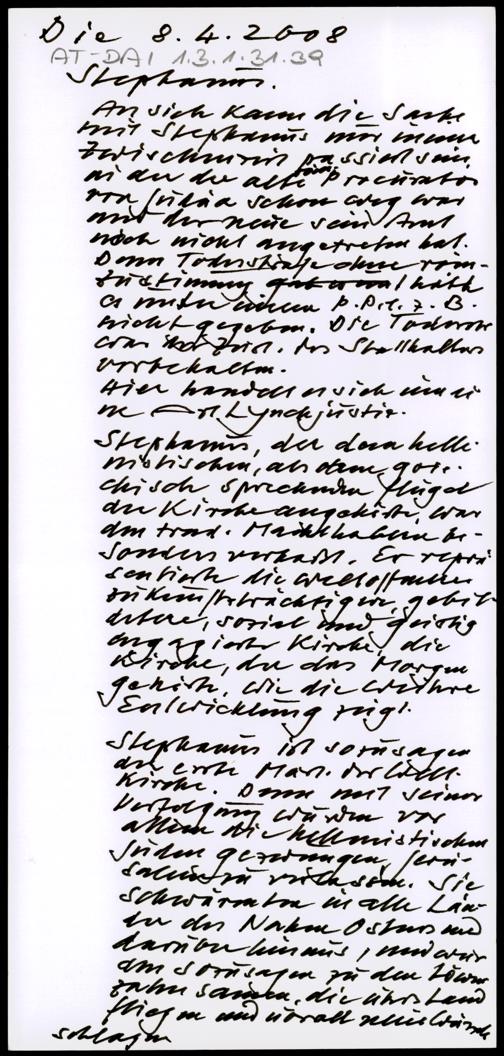 Die 8.4.2008
AT-DA1 1.3.1.31.39
Stephanus.
An sich kann die Sache
mit Stephanus nur in einer
passiert sein,
in der der alte röm. Procurator
von Judäa schon weg war
und der neue sein Amt
noch nicht angetreten hat.
Denn Todesstrafe ohne röm.
Zustimmung hätte
es unter einem P.P. z. B.
nicht gegeben. Die Todesstr.
war des Statthalters
vorbehalten.
Hier handelt es sich um ei-
ne Art Lynchjustiz.
Stephanus, der dem helle-
nistischen, also dem grie-
chisch sprechenden Flügel
der Kirche angehörte, war
den trad. Machthabern be-
sonders verhasst. Er reprä-
sentierte die weltoffenere
zukunftsträchtigere, gebil-
detere, sozial und geistig
engagierte Kirche, die
Kirche, der das Morgen
gehörte, wie die weitere
Entwicklung zeigt.
Stephanus ist sozusagen
der erste Märt. der Welt-
Kirche. Denn mit seiner
Verfolgung wurden vor
allem die hellenistischen
Juden gezwungen, Jeru-
salem zu verlassen. Sie
schwärmten in alle Län-
der des Nahen Ostens und
darüber hinaus, und wur-
den sozusagen zu den Löwen-
zahnsamen, die übers Land
fliegen und überall neue Wurzeln
schlagen